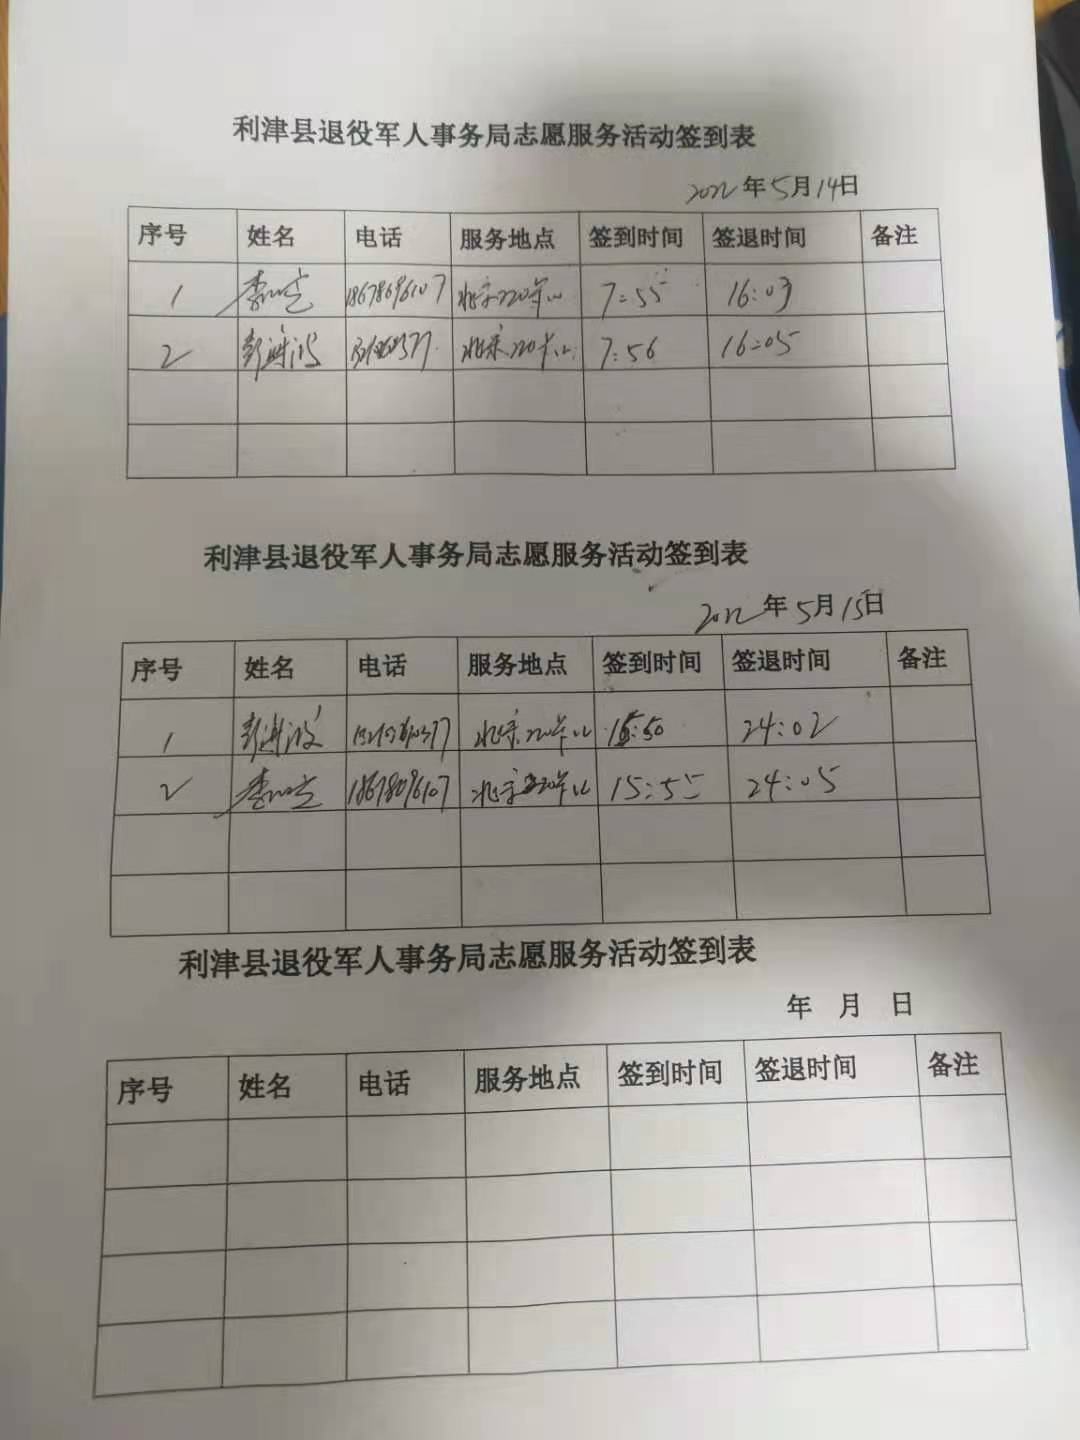 利津县退役军人事务局志愿服务活动签到表
2022年5月14日
序号 姓名 电话 服务地点 签到时间 签退时间 备注
1 18678096107 7:55 16:03
2 7:56 16:05
利津县退役军人事务局志愿服务活动签到表
2022年5月15日
序号 姓名 电话 服务地点 签到时间 签退时间 备注
1 15:50 24:02
2 18678096107 15:55 24:05
利津县退役军人事务局志愿服务活动签到表
年 月 日
序号 姓名 电话 服务地点 签到时间 签退时间 备注